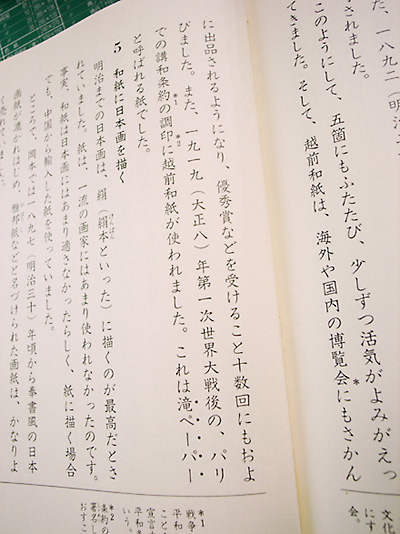 た、一八九二（明治二
されました。
このようにして、五箇にもふたたび、少しずつ活気がよみがえっ
てきました。そして、越前和紙は、海外や国内の博覧会*にもさかん
に出品されるようになり、優秀賞などを受けること十数回にもおよ
びました。また、一九一九（大正八）年第一次世界大戦後の、パリ
での講和条約*1の調印*2に越前和紙が使われました。これは滝ペーパー
と呼ばれる紙でした。
5 和紙に日本画を描く
明治までの日本画は、絹（絹本けんぽんといった）に描くのが最高だとさ
れていました。紙は、一流の画家にはあまり使われなかったのです。
事実、和紙は日本画にはあまり適さなかったらしく、紙に描く場合
でも、中国から輸入した紙を使っていました。
ところで、岡本では一八九七（明治三十）年頃から奉書風の日本
画紙が漉かれはじめ、雅邦紙などと名づけられた画紙は、かなりよ
文化
にす
会。
*1
戦争
平和
こと
宣言
いう。
平和条
*2
条約の
署名し
おすこ